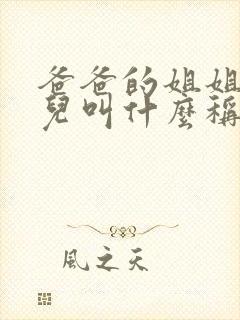 爸爸的姐姐
兒叫什麼稱
風之天